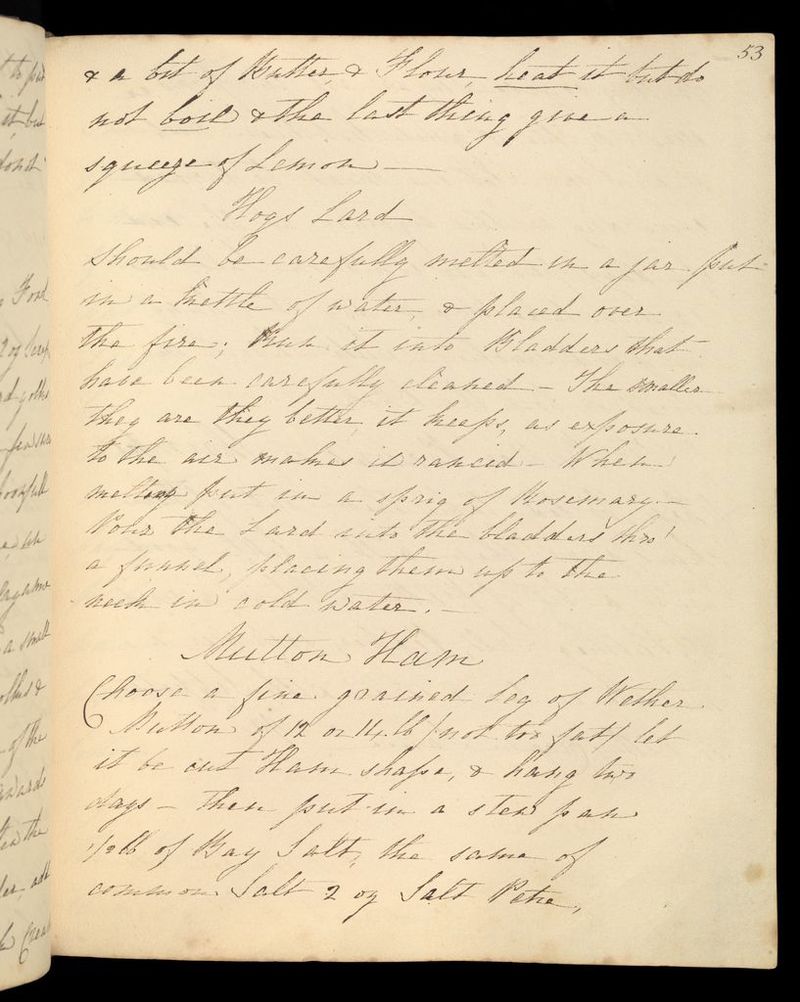 53
& a bit of Butter, & Flour, heat it but do
not boil & the last thing give a
squeeze of Lemon —
Hogs Lard
Should be carefully melted in a jar put
in a kettle of water, & placed over
the fire; Run it into Bladders that
have been carefully cleaned — The smaller
they are they better it keeps, as exposure
to the air makes it rancid — When
melting put in a sprig of Rosemary —
Pour the Lard into the bladders thro'
a funnel, placing them up to the
neck in cold water. —
Mutton Ham
Choose a fine grained Leg of Wether
Mutton of 12 or 14 lb (not too fat) let
it be cut Ham shape, & hang two
days — then put in a stew pan
1/2 lb of Bay Salt, the same of
common Salt 2 oz Salt Petre,